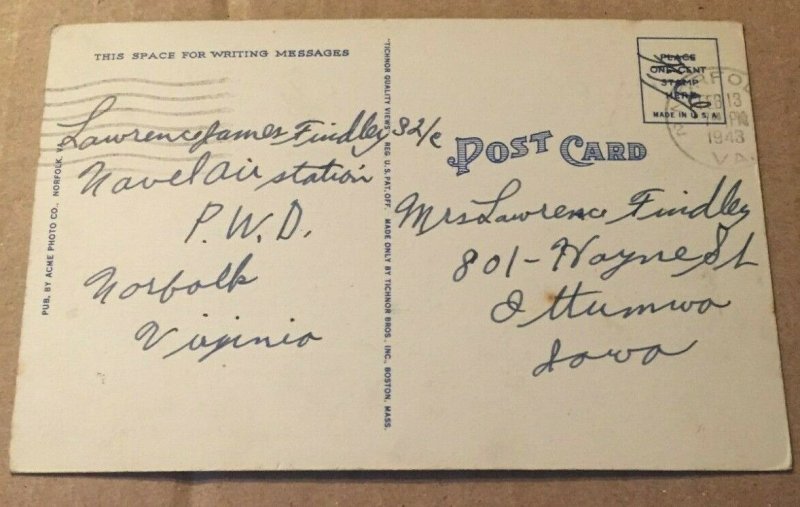 THIS SPACE FOR WRITING MESSAGES
Lawrence James Findley S2/c
Navel Air station
P.W.D.
Norfolk
Virginia
PUB. BY ACME PHOTO CO., NORFOLK, VA.
"TICHNOR QUALITY VIEWS," REG. U.S. PAT. OFF. MADE ONLY BY TICHNOR BROS., INC., BOSTON, MASS.
PLACE
ONE CENT
STAMP
HERE
MADE IN U.S.A.
FEB 13
PM
1943
VA.
POST CARD
Mrs Lawrence Findley
801 - Hayne St
Ottumwa
Iowa